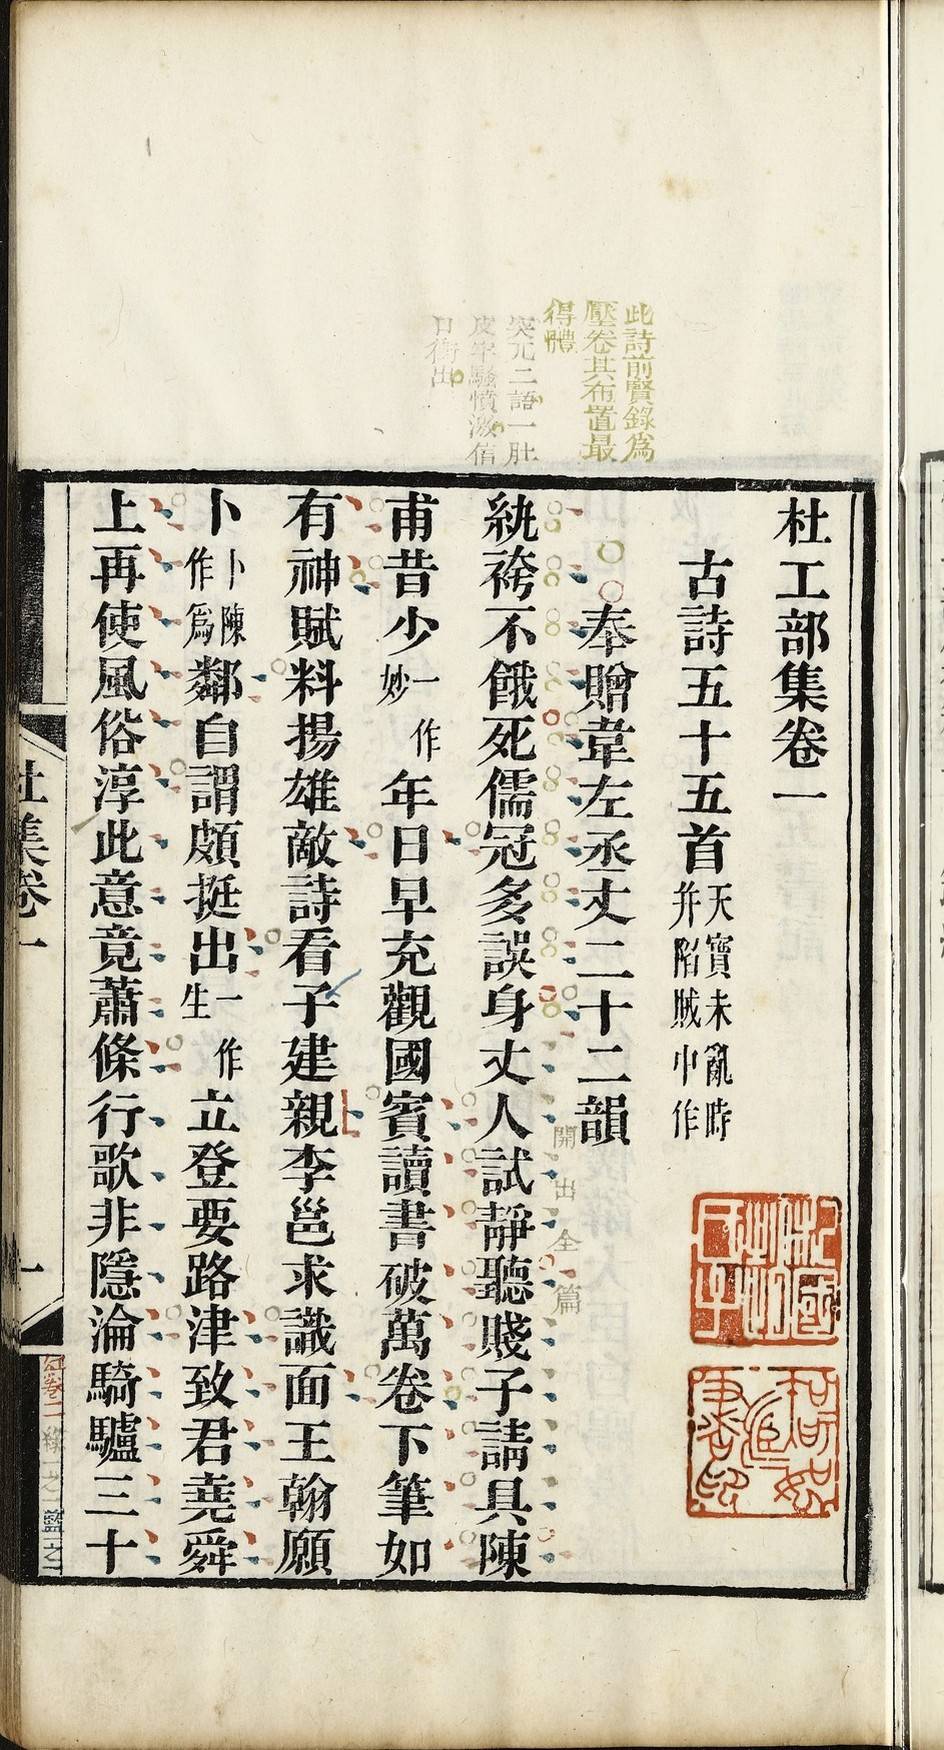 杜工部集卷一
古詩五十五首 天寶未亂時
并陷賊中作
奉贈韋左丞丈二十二韻
紈袴不餓死儒冠多誤身丈人試靜聽賤子請具陳
甫昔少 一作
妙 年日早充觀國賓讀書破萬卷下筆如
有神賦料揚雄敵詩看子建親李邕求識面王翰願
卜 卜陳
作爲 鄰自謂頗挺出 一作
生 立登要路津致君堯舜
上再使風俗淳此意竟蕭條行歌非隱淪騎驢三十
此詩前賢錄爲
壓卷其布置最
得體
突兀二語一肚
皮牢騷憤激信
口衝出
開出全篇
杜集卷一
一